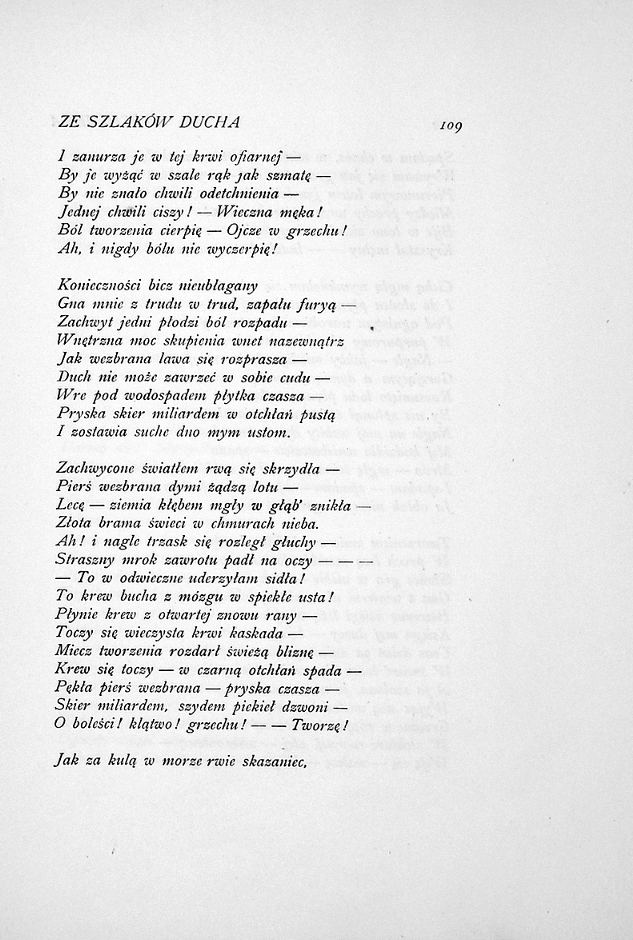 ZE SZLAKÓW DUCHA 109
I zanurza je w tej krwi ofiarnej —
By je wyżąć w szale rąk jak szmatę —
By nie znało chwili odetchnienia —
Jednej chwili ciszy! — Wieczna męka!
Ból tworzenia cierpię — Ojcze w grzechu!
Ah, i nigdy bólu nie wyczerpię!
Konieczności bicz nieubłagany
Gna mnie z trudu w trud, zapału furyą —
Zachwyt jedni płodzi ból rozpadu —
Wnętrzna moc skupienia wnet nazewnątrz
Jak wezbrana lawa się rozprasza —
Duch nie może zawrzeć w sobie cudu —
Wre pod wodospadem płytka czasza —
Pryska skier miliardem w otchłań pustą
I zostawia suche dno mym ustom.
Zachwycone światłem rwą się skrzydła —
Pierś wezbrana dymi żądzą lotu —
Lecę — ziemia kłębem mgły w głąb' znikła —
Złota brama świeci w chmurach nieba.
Ah! i nagle trzask się rozległ głuchy —
Straszny mrok zawrotu padł na oczy — — —
— To w odwieczne uderzyłam sidła!
To krew bucha z mózgu w spiekłe usta!
Płynie krew z otwartej znowu rany —
Toczy się wieczysta krwi kaskada —
Miecz tworzenia rozdarł świeżą bliznę —
Krew się toczy — w czarną otchłań spada —
Pękła pierś wezbrana — pryska czasza —
Skier miliardem, szydem piekieł dzwoni —
O boleści! klątwo! grzechu! — — Tworzę!
Jak za kulą w morze rwie skazaniec,